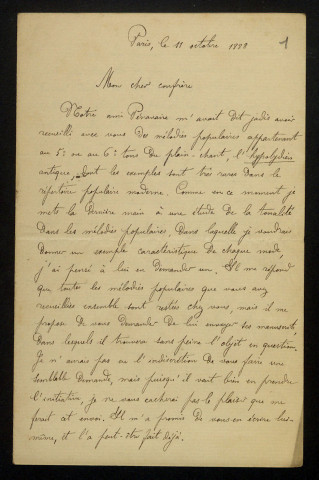 1
Paris, le 11 octobre 1888
Mon cher confrère
Notre ami Pévanaire m'avait dit jadis avoir
recueilli avec vous des mélodies populaires appartenant
au 5e ou au 6e tons du plain-chant, l'hypolydien
antique, dont les exemples sont très rares dans le
répertoire populaire moderne. Comme en ce moment je
mets la dernière main à une étude de la tonalité
dans les mélodies populaires, dans laquelle je voudrais
donner un exemple caractéristique de chaque mode,
j'ai pensé à lui en demander un. Il me répond
que toutes les mélodies populaires que vous avez
recueillies ensemble sont restées chez vous, mais il me
propose de vous demander de lui envoyer ses manuscrits,
dans lesquels il trouvera sans peine l'objet en question.
Je n'aurais pas eu l'indiscrétion de vous faire une
semblable demande, mais puisqu'il veut bien en prendre
l'initiative, je ne vous cacherai pas le plaisir que me
ferait cet envoi. Il m'a promis de vous en écrire lui-
même, et l'a peut-être fait déjà.